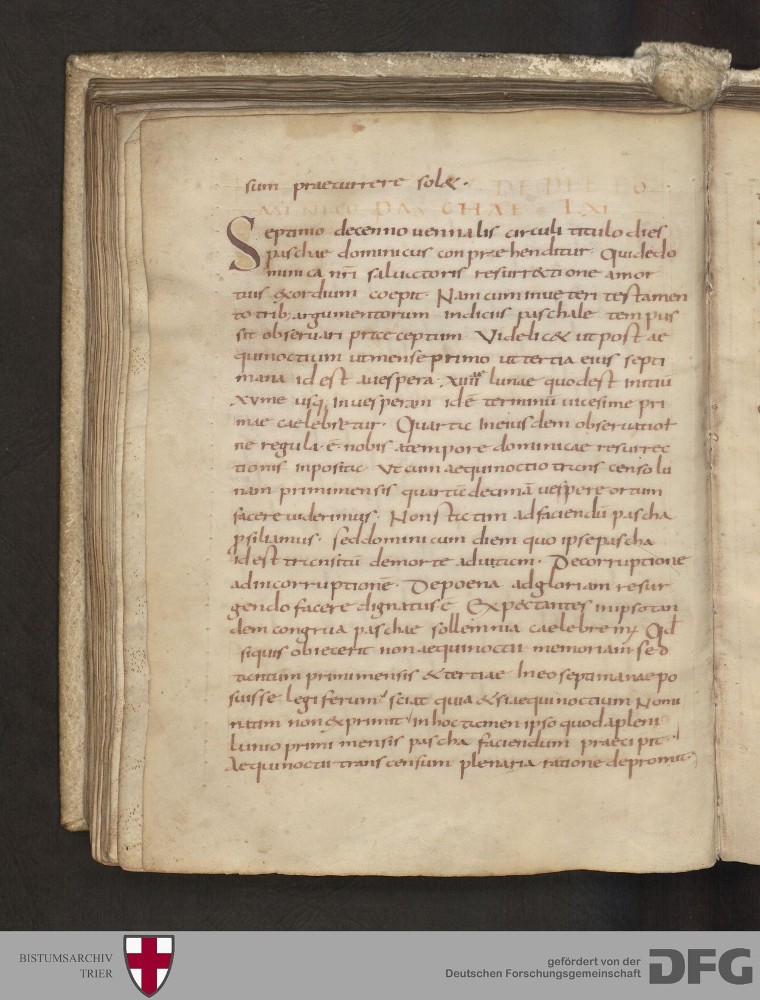 sum praecurrere sol&.
DE DIE DO
MINICO PASCHAE LXI
Septimo decennovennalis circuli titulo dies
paschae dominicus conpraehenditur. Qui dedo
minica nr̄i salvatoris resurrectione amor
tuis exordium coepit. Nam cum inveteri testamen
to trib; argumentorum indiciis paschale tempus
sit observari praeceptum. Videlic& ut post ae
quinoctium ut mense primo ut tertia eius septi
mana id est avespera xiiii lunae quod est initiū
xvme usq; in vesperam id ē terminū vicesime pri
mae caelebr&ur. Quarta ineiusdem observatiot
ne regula ē nobis atempore dominicae resurrec
tionis inposita. Ut cum aequinoctio transcenso lu
nam primi mensis quartādecimā vespere ortum
facere viderimus. Non statim adfaciendū pascha
psiliamus. Sed dominicum diem quo ipse pascha
id est transitū demorte advitam. Decorruptione
adincorruptionē. Depoena adgloriam resur
gendo facere dignatus ē Expectantes inipso tan
dem congrua paschae sollemnia caelebrem; Qd
siquis obiecerit non aequinoctii memoriam sed
tantum primi mensis &tertiae ineo septimanae po
suisse legiferum sciat quia &si aequinoctium nomi
natim non exprimit in hoc tamen ipso quod apleni
lunio primi mensis pascha faciendum praecipit.
Aequinoctii transcensum plenaria ratione depromit.
BISTUMSARCHIV
TRIER
gefördert von der
Deutschen Forschungsgemeinschaft
DFG